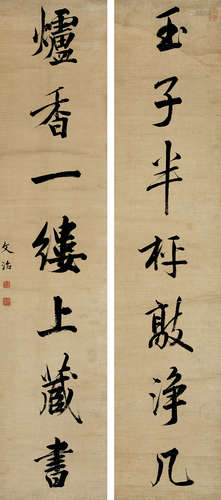 玉子半枰敲淨几
爐香一縷上藏書
文治